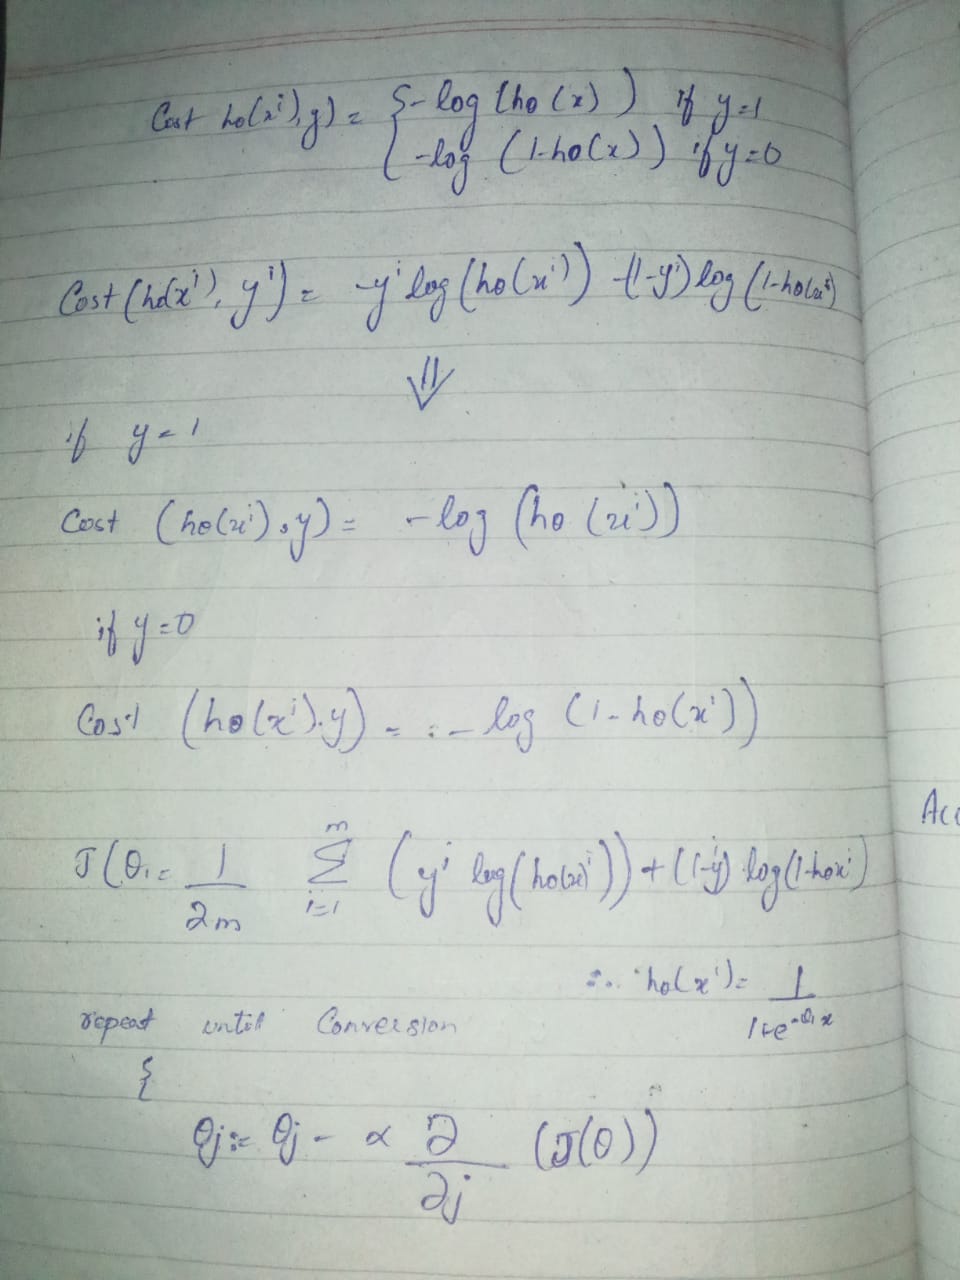 Cost ho(xⁱ), y) = { -log (ho (x)) if y=1
-log (1-ho(x)) if y=0
Cost (ho(xⁱ), yⁱ) = -yⁱ log (ho(xⁱ)) -(1-yⁱ) log (1-ho(xⁱ)
⇓
if y=1
Cost (ho(xⁱ), y) = -log (ho (xⁱ))
if y=0
Cost (ho(xⁱ), y) = :- log (1-ho(xⁱ))
J(θ₁ = 1/2m Σ_{i=1}^{m} (yⁱ log (ho(x)ⁱ)) + (1-yⁱ) log (1-hoxⁱ)
∴ ho(xⁱ) = 1/1+e^{-θ₁x}
repeat until Conversion
{
θj := θj - α ∂/∂j (J(θ))
Acc